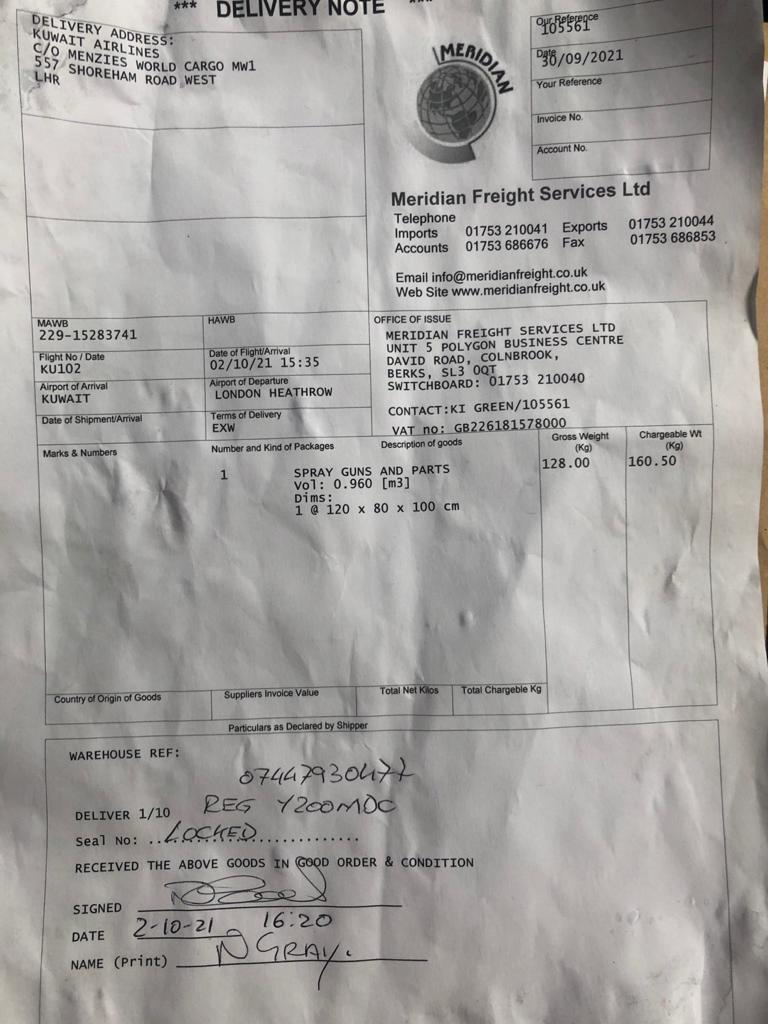 *** DELIVERY NOTE ***
DELIVERY ADDRESS:
KUWAIT AIRLINES
C/O MENZIES WORLD CARGO MW1
557 SHOREHAM ROAD WEST
LHR
MERIDIAN
Our Reference
105561
Date
30/09/2021
Your Reference
Invoice No.
Account No.
Meridian Freight Services Ltd
Telephone
Imports 01753 210041 Exports 01753 210044
Accounts 01753 686676 Fax 01753 686853
Email info@meridianfreight.co.uk
Web Site www.meridianfreight.co.uk
MAWB
229-15283741
HAWB
Flight No / Date
KU102
Date of Flight/Arrival
02/10/21 15:35
Airport of Arrival
KUWAIT
Airport of Departure
LONDON HEATHROW
Date of Shipment/Arrival
Terms of Delivery
EXW
OFFICE OF ISSUE
MERIDIAN FREIGHT SERVICES LTD
UNIT 5 POLYGON BUSINESS CENTRE
DAVID ROAD, COLNBROOK,
BERKS, SL3 0QT
SWITCHBOARD: 01753 210040
CONTACT:KI GREEN/105561
VAT no: GB226181578000
Marks & Numbers
Number and Kind of Packages
Description of goods
Gross Weight
(Kg)
Chargeable Wt
(Kg)
1 SPRAY GUNS AND PARTS 128.00 160.50
Vol: 0.960 [m3]
Dims:
1 @ 120 x 80 x 100 cm
Country of Origin of Goods
Suppliers Invoice Value
Total Net Kilos
Total Chargeble Kg
Particulars as Declared by Shipper
WAREHOUSE REF:
07447930477
DELIVER 1/10 REG Y200MDC
Seal No: ..LOCKED..............
RECEIVED THE ABOVE GOODS IN GOOD ORDER & CONDITION
SIGNED
DATE 2-10-21 16:20
NAME (Print) N GRAY.